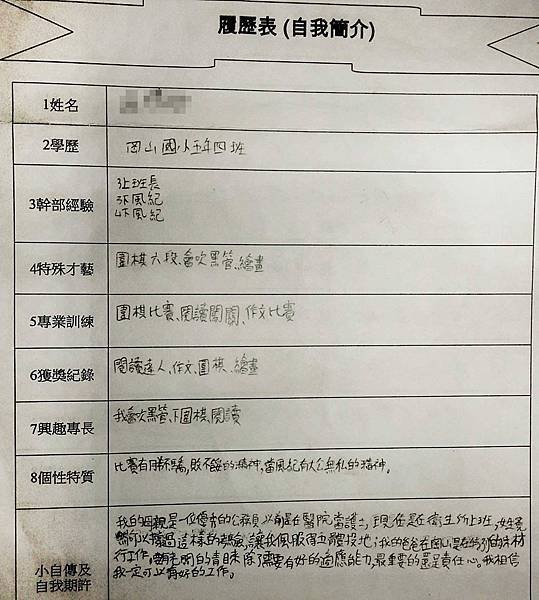 履歷表 (自我簡介)
1姓名
2學歷 岡山國小五年四班
3幹部經驗 3上班長
3下風紀
4下風紀
4特殊才藝 圍棋六段、會吹黑管、繪畫
5專業訓練 圍棋比賽、閱讀闖關、作文比賽
6獲獎紀錄 閱讀達人、作文、圍棋、繪畫
7興趣專長 我會吹黑管、下圍棋、閱讀
8個性特質 比賽有勝不驕,敗不餒的精神,當風紀有大公無私的精神。
小自傳及
自我期許
我的母親是一位優秀的公務員,以前是在醫院當護士,現在是在衛生所上班,
讓我佩服得五體投地;我的爸爸在岡山
行工作,光明的青睞除了需要有好的適應能力,最重要的還是責任心。我相信
我一定可以有好的工作。